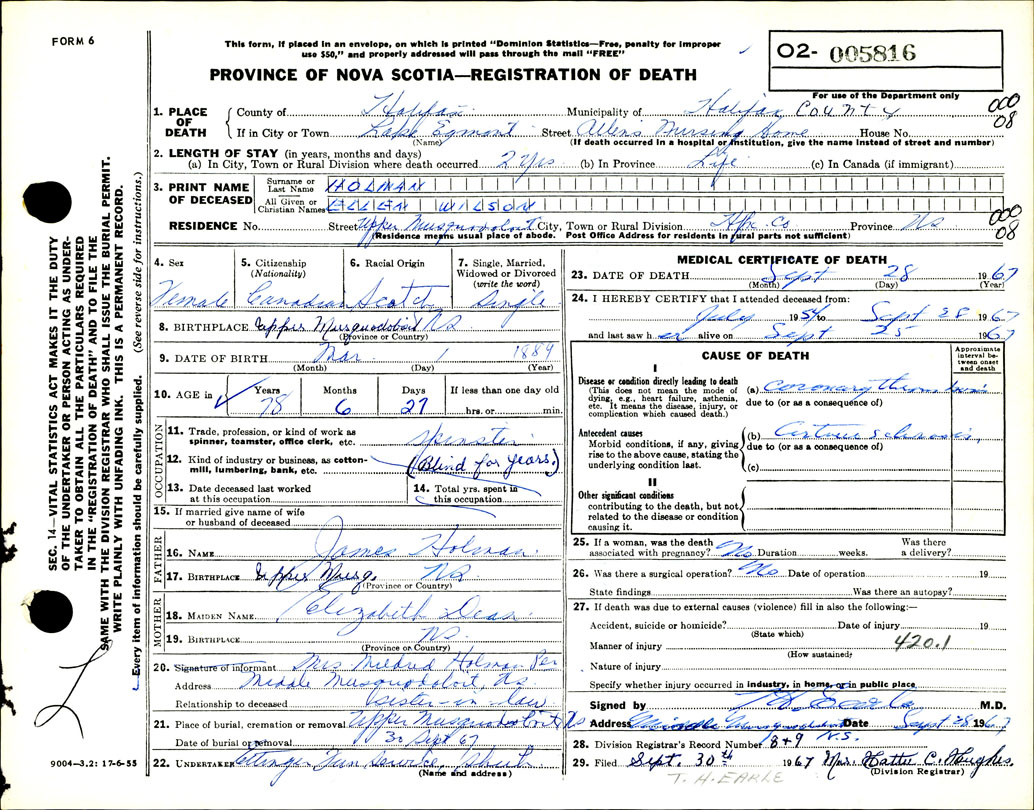 FORM 6
This form, if placed in an envelope, on which is printed "Dominion Statistics—Free, penalty for improper
use $50," and properly addressed will pass through the mail "FREE"
O2- 005816
PROVINCE OF NOVA SCOTIA—REGISTRATION OF DEATH
For use of the Department only
1. PLACE OF DEATH
County of Halifax Municipality of Halifax County 000
If in City or Town Lake Egmont Street Allens Nursing Home House No. 08
(Name) (If death occurred in a hospital or institution, give the name instead of street and number)
2. LENGTH OF STAY (in years, months and days)
(a) In City, Town or Rural Division where death occurred 2 yrs (b) In Province Life (c) In Canada (if immigrant)
3. PRINT NAME OF DECEASED
Surname or Last Name HOLMAN
All Given or Christian Names ELLEN WILSON
RESIDENCE No. Street Upper Musquodoboit City, Town or Rural Division Hfx Co Province NS 000 08
(Residence means usual place of abode. Post Office Address for residents in rural parts not sufficient)
4. Sex Female
5. Citizenship (Nationality) Canadian
6. Racial Origin Scotch
7. Single, Married, Widowed or Divorced (write the word) Single
8. BIRTHPLACE Upper Musquodoboit NS
(Province or Country)
9. DATE OF BIRTH Mar 1 1889
(Month) (Day) (Year)
10. AGE in Years 78 Months 6 Days 27 If less than one day old hrs. or min.
OCCUPATION
11. Trade, profession, or kind of work as spinner, teamster, office clerk, etc. spinster
12. Kind of industry or business, as cotton-mill, lumbering, bank, etc. (Blind for years.)
13. Date deceased last worked at this occupation
14. Total yrs. spent in this occupation
15. If married give name of wife or husband of deceased
FATHER
16. NAME James Holman
17. BIRTHPLACE Upper Musq. NS
(Province or Country)
MOTHER
18. MAIDEN NAME Elizabeth Dean
19. BIRTHPLACE NS
(Province or Country)
20. Signature of informant Mrs Mildred Holman Per
Address Middle Musquodoboit, NS
Relationship to deceased sister-in-law
21. Place of burial, cremation or removal Upper Musquodoboit NS
Date of burial or removal 30 Sept 67
22. UNDERTAKER Ettinger Fun Service, Shub
(Name and address)
MEDICAL CERTIFICATE OF DEATH
23. DATE OF DEATH Sept 28 1967
(Month) (Day) (Year)
24. I HEREBY CERTIFY that I attended deceased from:
July 1954 to Sept 28 1967
and last saw her alive on Sept 25 1967
CAUSE OF DEATH
Approximate interval between onset and death
I
Disease or condition directly leading to death
(This does not mean the mode of dying, e.g., heart failure, asthenia, etc. It means the disease, injury, or complication which caused death.)
(a) coronary thrombosis
due to (or as a consequence of)
Antecedent causes
Morbid conditions, if any, giving rise to the above cause, stating the underlying condition last.
(b)
due to (or as a consequence of)
(c)
II
Other significant conditions contributing to the death, but not related to the disease or condition causing it.
25. If a woman, was the death associated with pregnancy? No Duration weeks. Was there a delivery?
26. Was there a surgical operation? No Date of operation 19
State findings Was there an autopsy?
27. If death was due to external causes (violence) fill in also the following:—
Accident, suicide or homicide? Date of injury 19
(State which)
Manner of injury 420.1
(How sustained)
Nature of injury
Specify whether injury occurred in industry, in home, or in public place
Signed by T H Earle M.D.
Address Middle Musquodoboit N.S. Date Sept 28 1967
28. Division Registrar's Record Number 849
29. Filed Sept. 30th 1967 Mrs. Hattie C. Hughes
(Division Registrar)
T. H. EARLE
9004—3.2: 17-6-55
SEC. 14—VITAL STATISTICS ACT MAKES IT THE DUTY
OF THE UNDERTAKER OR PERSON ACTING AS UNDER-
TAKER TO OBTAIN ALL THE PARTICULARS REQUIRED
IN THE "REGISTRATION OF DEATH" AND TO FILE THE
SAME WITH THE DIVISION REGISTRAR WHO SHALL ISSUE THE BURIAL PERMIT.
WRITE PLAINLY WITH UNFADING INK. THIS IS A PERMANENT RECORD.
Every item of information should be carefully supplied. (See reverse side for instructions.)